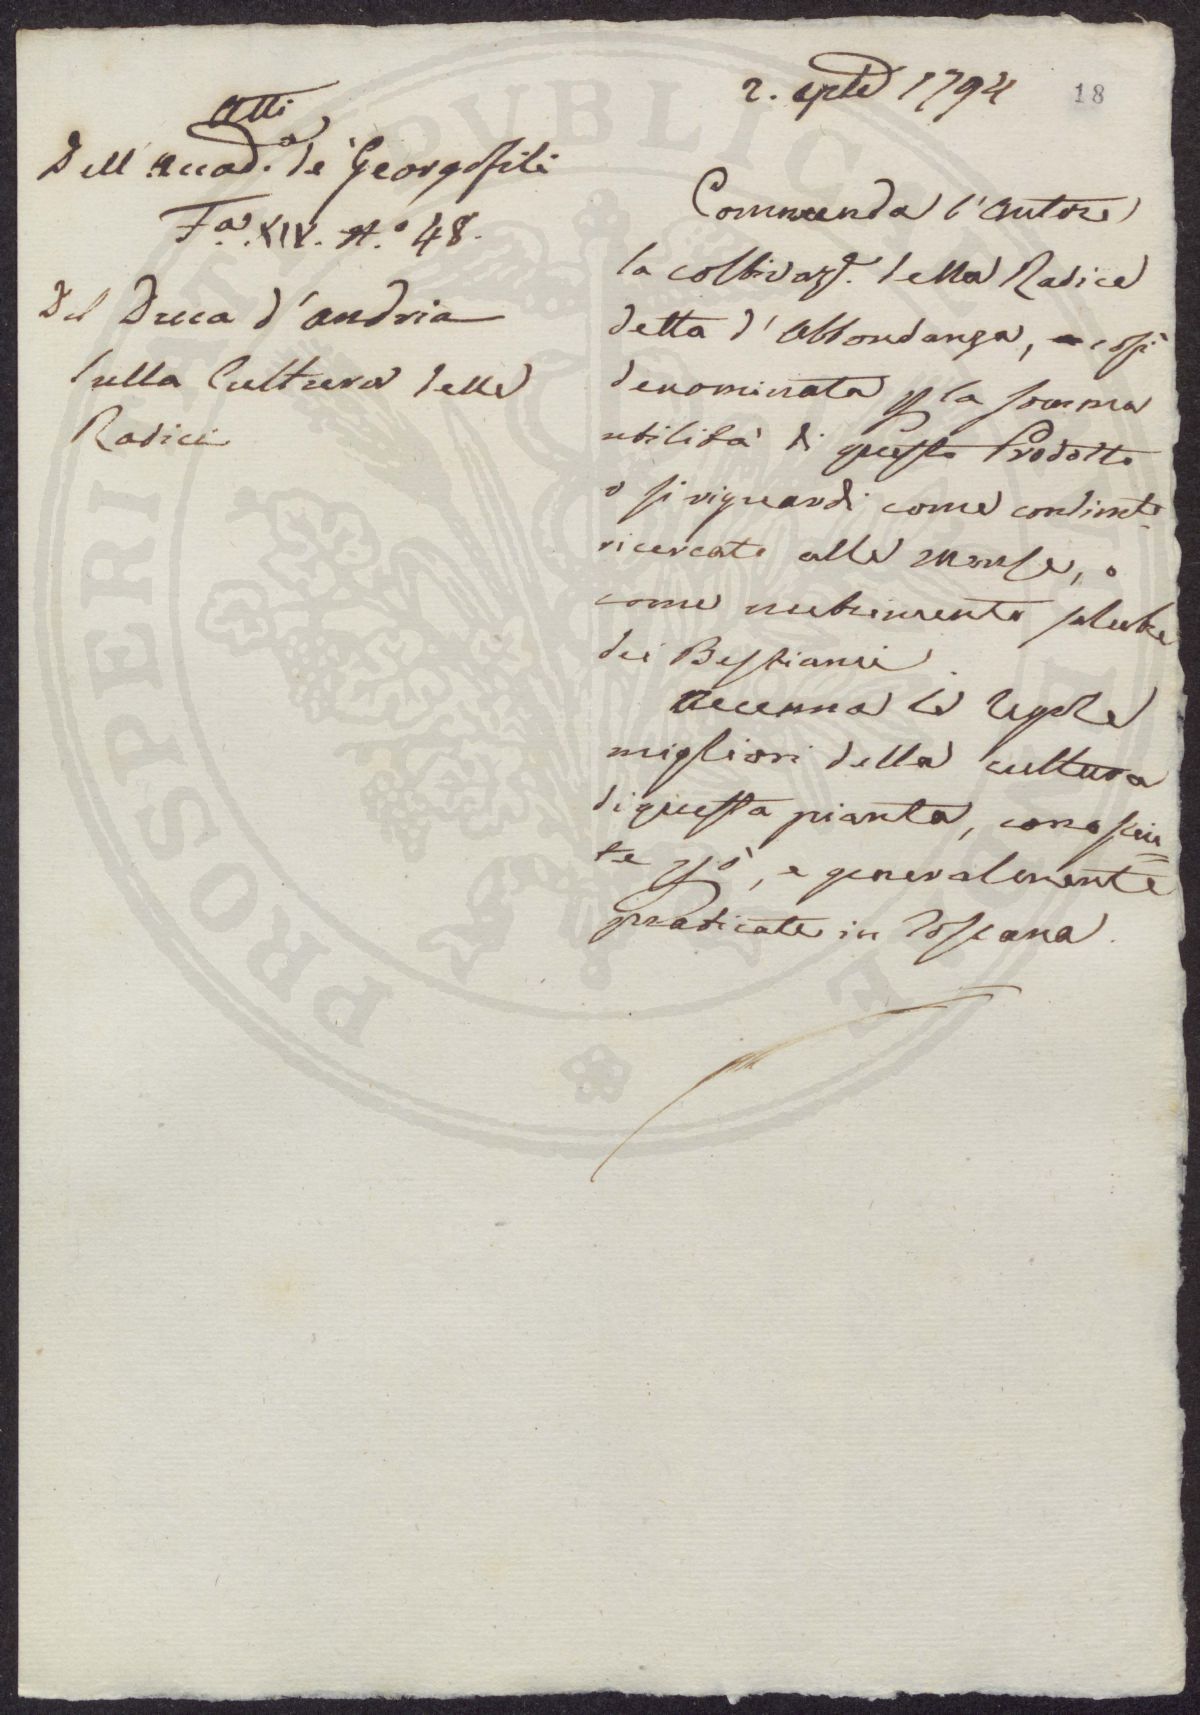 2. 7bre 1794
18
Atti
Dell'Accad.a de' Georgofili
F.a XIV. N.o 48.
Del Duca d'Andria
Sulla Cultura delle
Radici
Commenda l'Autore
la coltivaz.e della Radice
detta d'Abbondanza, così
denominata p la somma
utilità di questo Prodotto
o si riguardi come condimto
ricercato alle Mense, o
come nutrimento salubre
dei Bestiami.
Accenna le regole
migliori della cultura
di questa pianta, conosciu=
te già, e generalmente
praticate in Toscana.
PROSPERITATI PUBLICAE